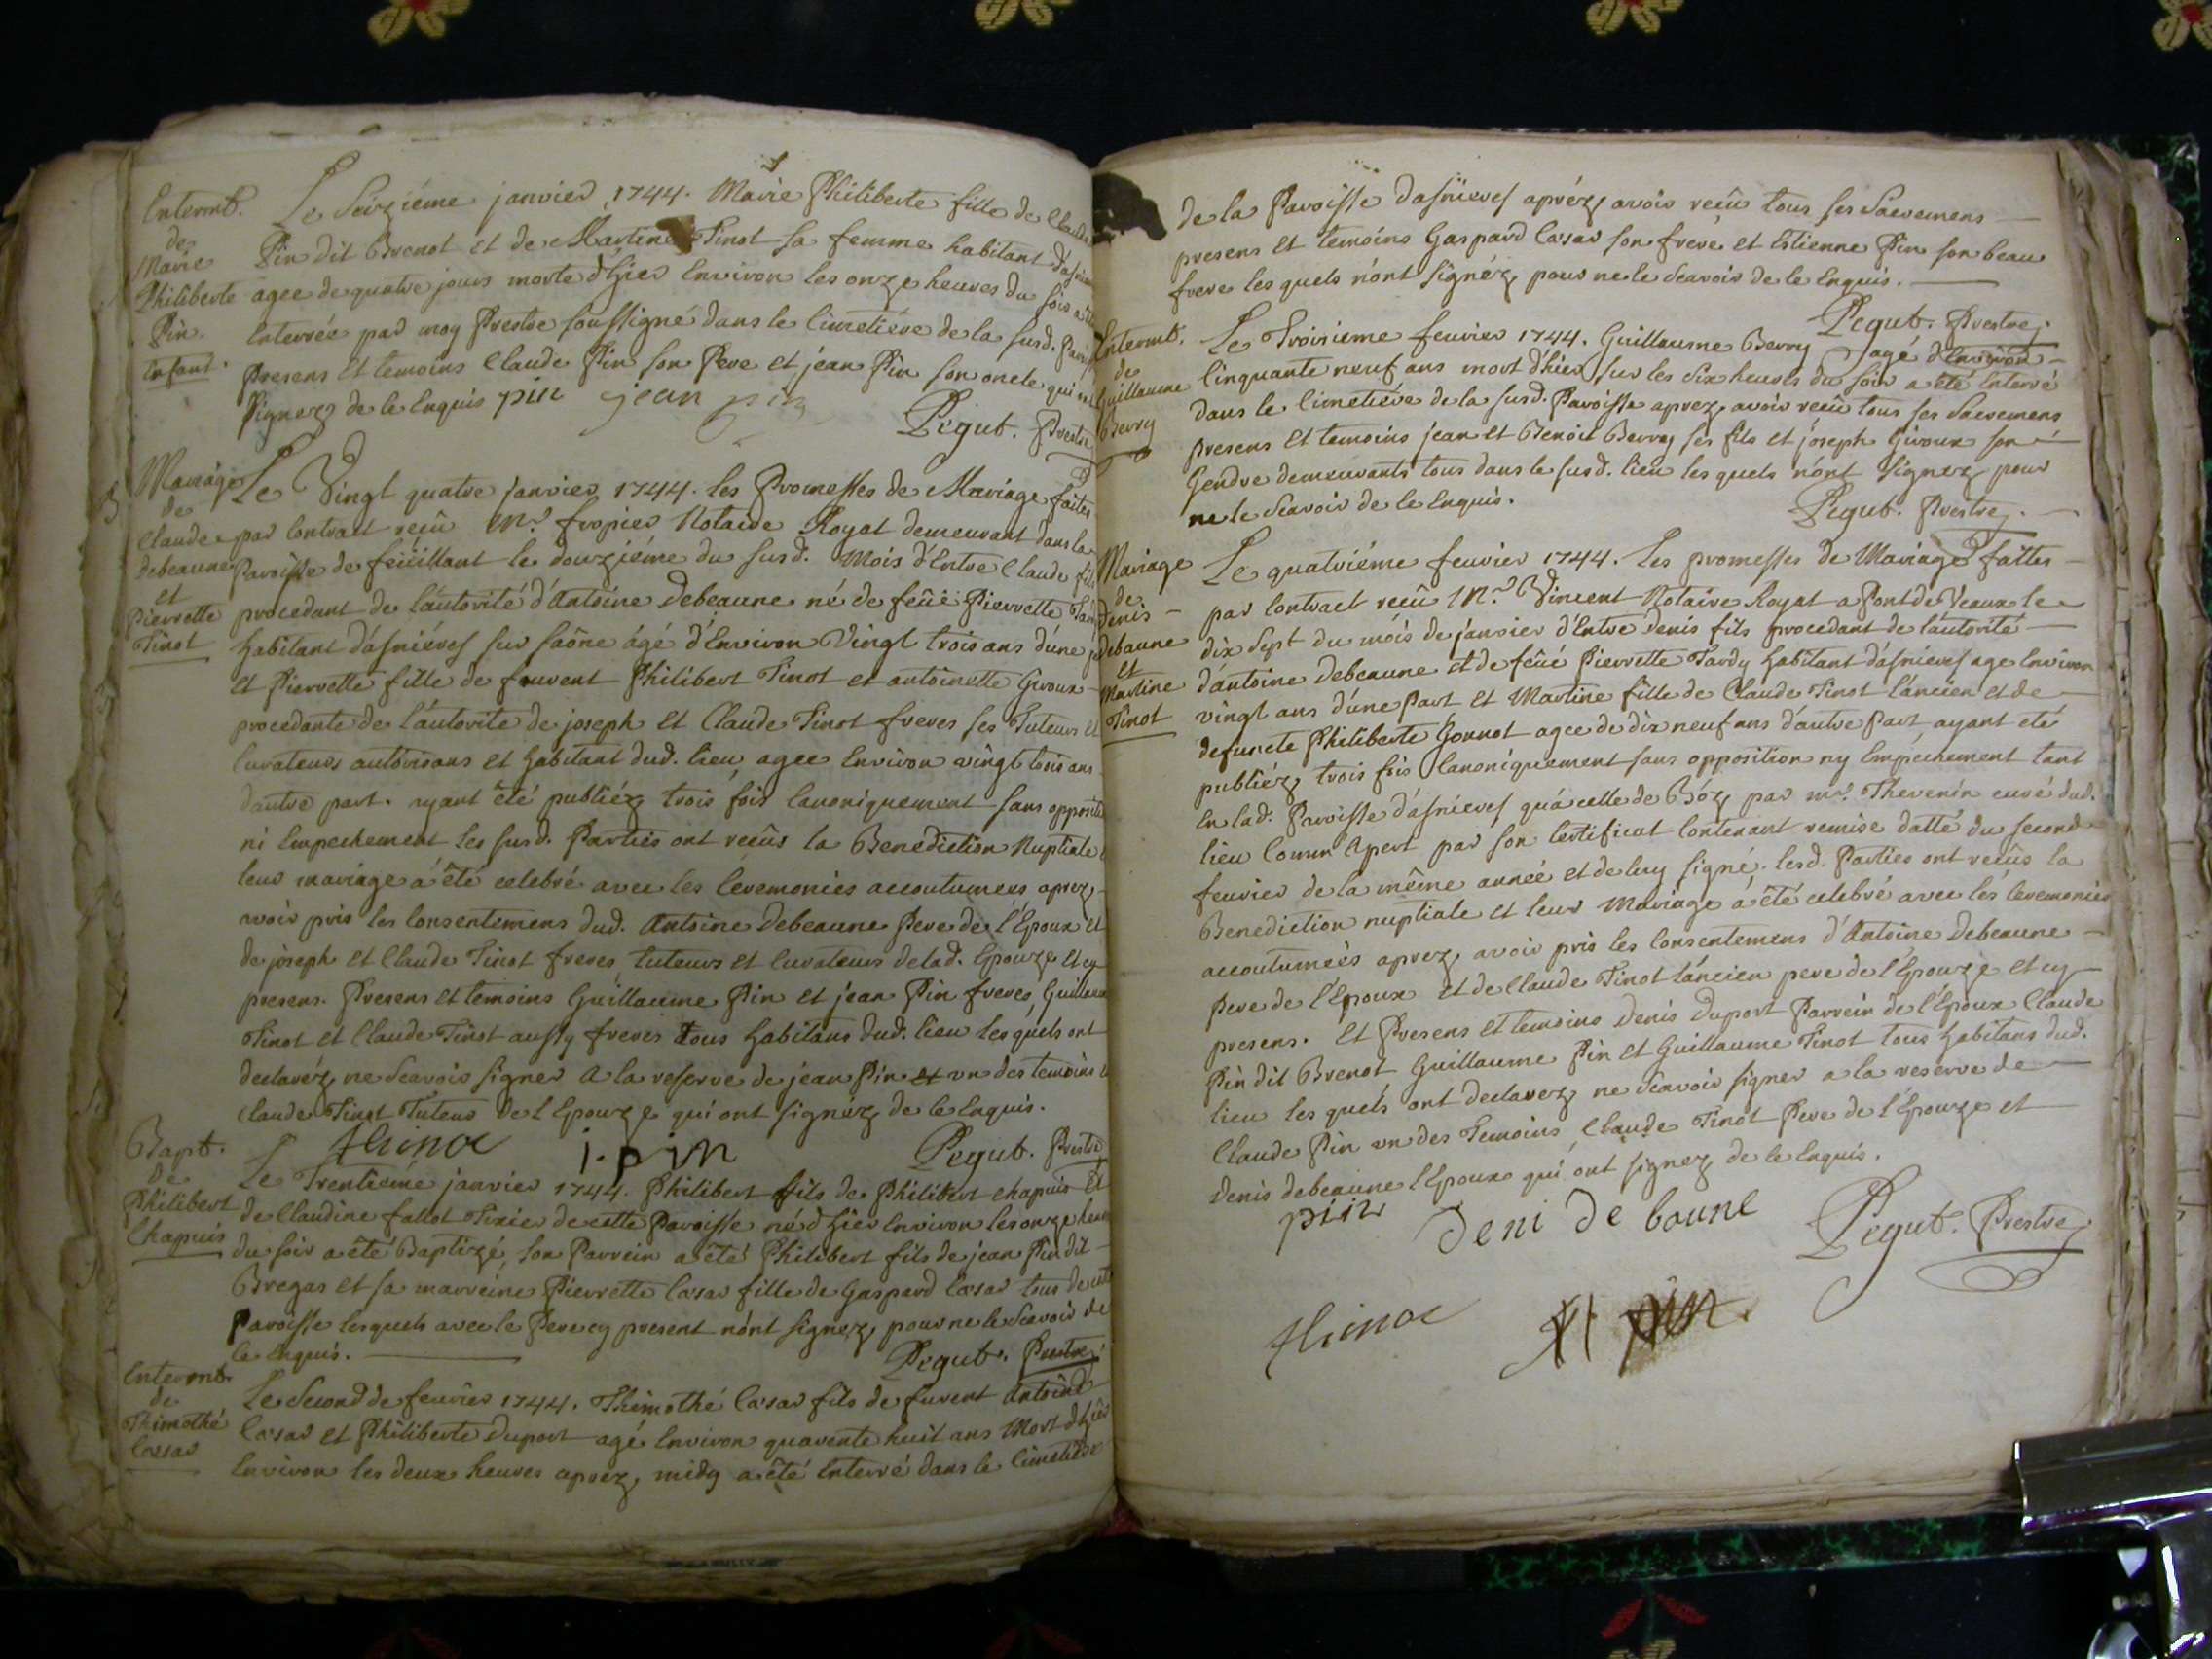 Enterrmt.
de
Marie
Philiberte
Pin.
Enfant.
Le Seizième janvier 1744. Marie Philiberte fille de Claude
Pin dit Brenot et de Martine Tinot sa femme habitant
agee de quatre jours morte d'hier Environ les onze heures du soir
Enterrée par moy Prestre soussigné dans le Cimetiére de la susd.
Presens et temoins Claude Pin son Pere et jean Pin son oncle qui
Signez de ce Enquis pin jean pin
Pegut. Prestre
Mariage
de
Claude
debeaune
et
Pierrette
Tinot
Le Vingt quatre janvier 1744. les Promesses de Mariage faites
par Contract receû Mr. fropier Notaire Royal demeurant dans la
Paroisse de feüillant le douzième du susd. Mois d'Entre Claude fils
procedant de l'autorité d'Antoine Debeaune né de feüe Pierrette
habitant d'asniéres sur saône âgé d'Environ Vingt trois ans d'une
et Pierrette fille de fuvent Philibert Tinot et antoinette Giroux
procedante de l'autorité de joseph et Claude Tinot freres ses Tuteurs et
Curateurs autorisans et habitant dud. lieu agee Environ vingt trois ans
dautre part. ayant été publiéz trois fois Canoniquement sans
ni Empechement les susd. Parties ont receûs la Benediction Nuptiale
leur mariage a été celebré avec les Ceremonies accoutumees aprez
avoir pris les Consentemens dud. Antoine Debeaune Pere de l'Epoux et
de joseph et Claude Tinot freres tuteurs et Curateurs de lad. Epouze et cy
presens. Presens et temoins Guillaume Pin et jean Pin freres Guillaume
Tinot et Claude Tinot aussy freres Tous habitans dud. lieu lesquels ont
declaréz ne Scavoir signer a la reserve de jean Pin un des temoins
Claude Tinot Tuteur de l'Epouze qui ont signéz de ce Enquis.
j. pin
Pegut. Prestre
Bapt.
de
Philibert
Chapuis
Le Trentième janvier 1744. Philibert fils de Philibert chapuis et
de Claudine fallot Tixier de cette Paroisse né d'hier Environ les onze heures
du soir a été Baptizé, son Parrein a été Philibert fils de jean Pin dit
Bregas et sa marreine Pierrette Casar fille de Gaspard Casar tous de
Paroisse lesquels avec le Pere cy present n'ont signéz pour ne le Scavoir de
ce Enquis.
Pegut. Prestre
Enterrmt.
de
Thimothé
Cassar
Le Second de feuvrier 1744. Thimothé Casar fils de fuvent Antoine
Casar et Philiberte Duport agé Environ quarente huit ans Mort d'hier
Environ les deux heures aprez midy a été Enterré dans le Cimetiére
de la Paroisse d'asniéres apréz avoir receû tous ses Sacremens
presens et temoins Gaspard Casar son frere et Estienne Pin son beau
frere les quels n'ont signéz pour ne le Scavoir de ce Enquis.
Pegut. Prestre.
Enterrmt.
de
Guillaume
Berry
Le Troisieme feuvrier 1744. Guillaume Berry agé d'Environ
Cinquante neuf ans mort d'hier sur les six heures du soir a été Enterré
dans le Cimetiére de la susd. Paroisse aprez avoir receû tous ses Sacremens
presens et temoins jean et Benoit Berry ses fils et joseph Giroux son
Gendre demeurants tous dans le susd. lieu les quels n'ont signez pour
ne le Scavoir de ce Enquis.
Pegut. Prestre.
Mariage
de
denis
debaune
et
Martine
Tinot
Le quatriéme feuvrier 1744. Les promesses de Mariage faittes
par Contract receû Mr. Vincent Notaire Royal a Pont de Veaux le
dix Sept du mois de janvier d'Entre denis fils procedant de l'autorité
d'antoine debeaune et de feüe Pierrette Tardy habitant d'asniéres age Environ
vingt ans d'une Part et Martine fille de Claude Tinot l'ancien et de
defuncte Philiberte Gonnot agee de dix neuf ans d'autre Part, ayant eté
publiéz trois fois Canoniquement sans opposition ny Empechement tant
En lad. Paroisse d'asniéres qu'a celle de Bóz par mr. Thevenin curé dud.
lieu Comm Apert par son Certificat Contenant remise datté du second
feuvrier de la même année et de luy signé. lesd. Parties ont receûs la
Benediction nuptiale et leur Mariage a été celebré avec les Ceremonies
accoutumeés aprez avoir pris les Consentemens d'Antoine Debeaune
Pere de l'Epoux et de Claude Tinot l'ancien pere de l'Epouze et cy
presens. Et Presens et temoins Denis Duport Parrein de l'Epoux Claude
Pin dit Brenot Guillaume Pin et Guillaume Tinot tous habitans dud.
lieu les quels ont declarez ne Scavoir signer a la reserve de
Claude Pin un des Temoins, Claude Tinot Pere de l'Epouze et
Denis debeaune l'Epoux qui ont signez de ce Enquis.
pin deni de baune Pegut. Prestre